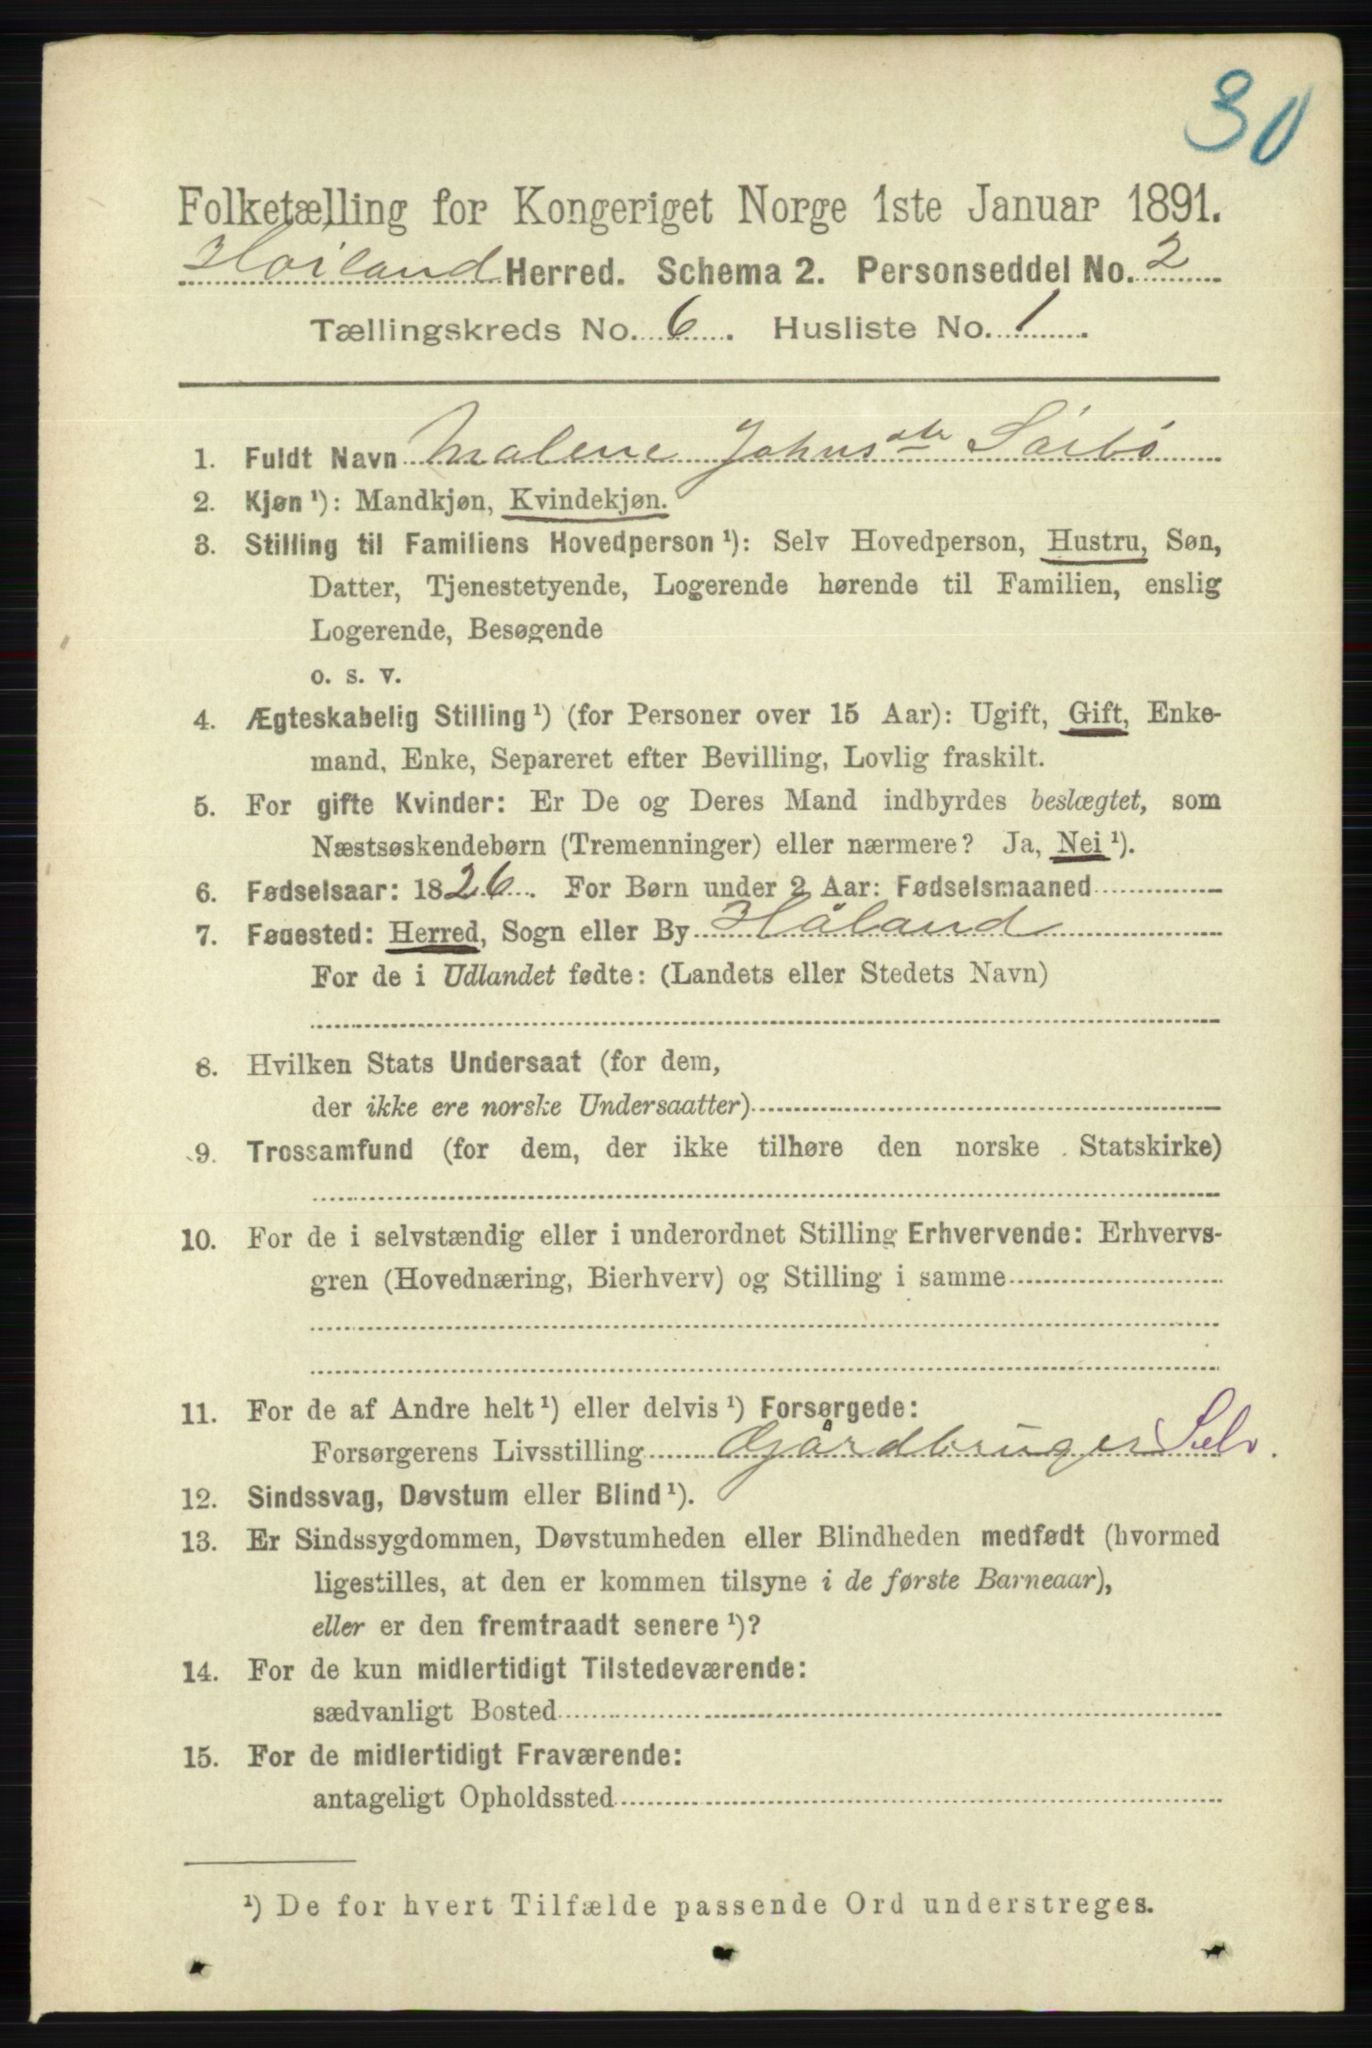 30
Folketælling for Kongeriget Norge 1ste Januar 1891.
Høiland Herred. Schema 2. Personseddel No. 2
Tællingskreds No. 6. Husliste No. 1
1. Fuldt Navn Malene Johnsdtr Sørbø
2. Kjøn ¹): Mandkjøn, Kvindekjøn.
3. Stilling til Familiens Hovedperson ¹): Selv Hovedperson, Hustru, Søn,
Datter, Tjenestetyende, Logerende hørende til Familien, enslig
Logerende, Besøgende
o. s. v.
4. Ægteskabelig Stilling ¹) (for Personer over 15 Aar): Ugift, Gift, Enke-
mand, Enke, Separeret efter Bevilling, Lovlig fraskilt.
5. For gifte Kvinder: Er De og Deres Mand indbyrdes beslægtet, som
Næstsøskendebørn (Tremenninger) eller nærmere? Ja, Nei ¹).
6. Fødselsaar: 1826. For Børn under 2 Aar: Fødselsmaaned
7. Føuested: Herred, Sogn eller By Håland
For de i Udlandet fødte: (Landets eller Stedets Navn)
8. Hvilken Stats Undersaat (for dem,
der ikke ere norske Undersaatter)
9. Trossamfund (for dem, der ikke tilhøre den norske Statskirke)
10. For de i selvstændig eller i underordnet Stilling Erhvervende: Erhvervs-
gren (Hovednæring, Bierhverv) og Stilling i samme
11. For de af Andre helt ¹) eller delvis ¹) Forsørgede:
Forsørgerens Livsstilling Gjårdbruger Selv.
12. Sindssvag, Døvstum eller Blind ¹).
13. Er Sindssygdommen, Døvstumheden eller Blindheden medfødt (hvormed
ligestilles, at den er kommen tilsyne i de første Barneaar),
eller er den fremtraadt senere ¹)?
14. For de kun midlertidigt Tilstedeværende:
sædvanligt Bosted
15. For de midlertidigt Fraværende:
antageligt Opholdssted
¹) De for hvert Tilfælde passende Ord understreges.